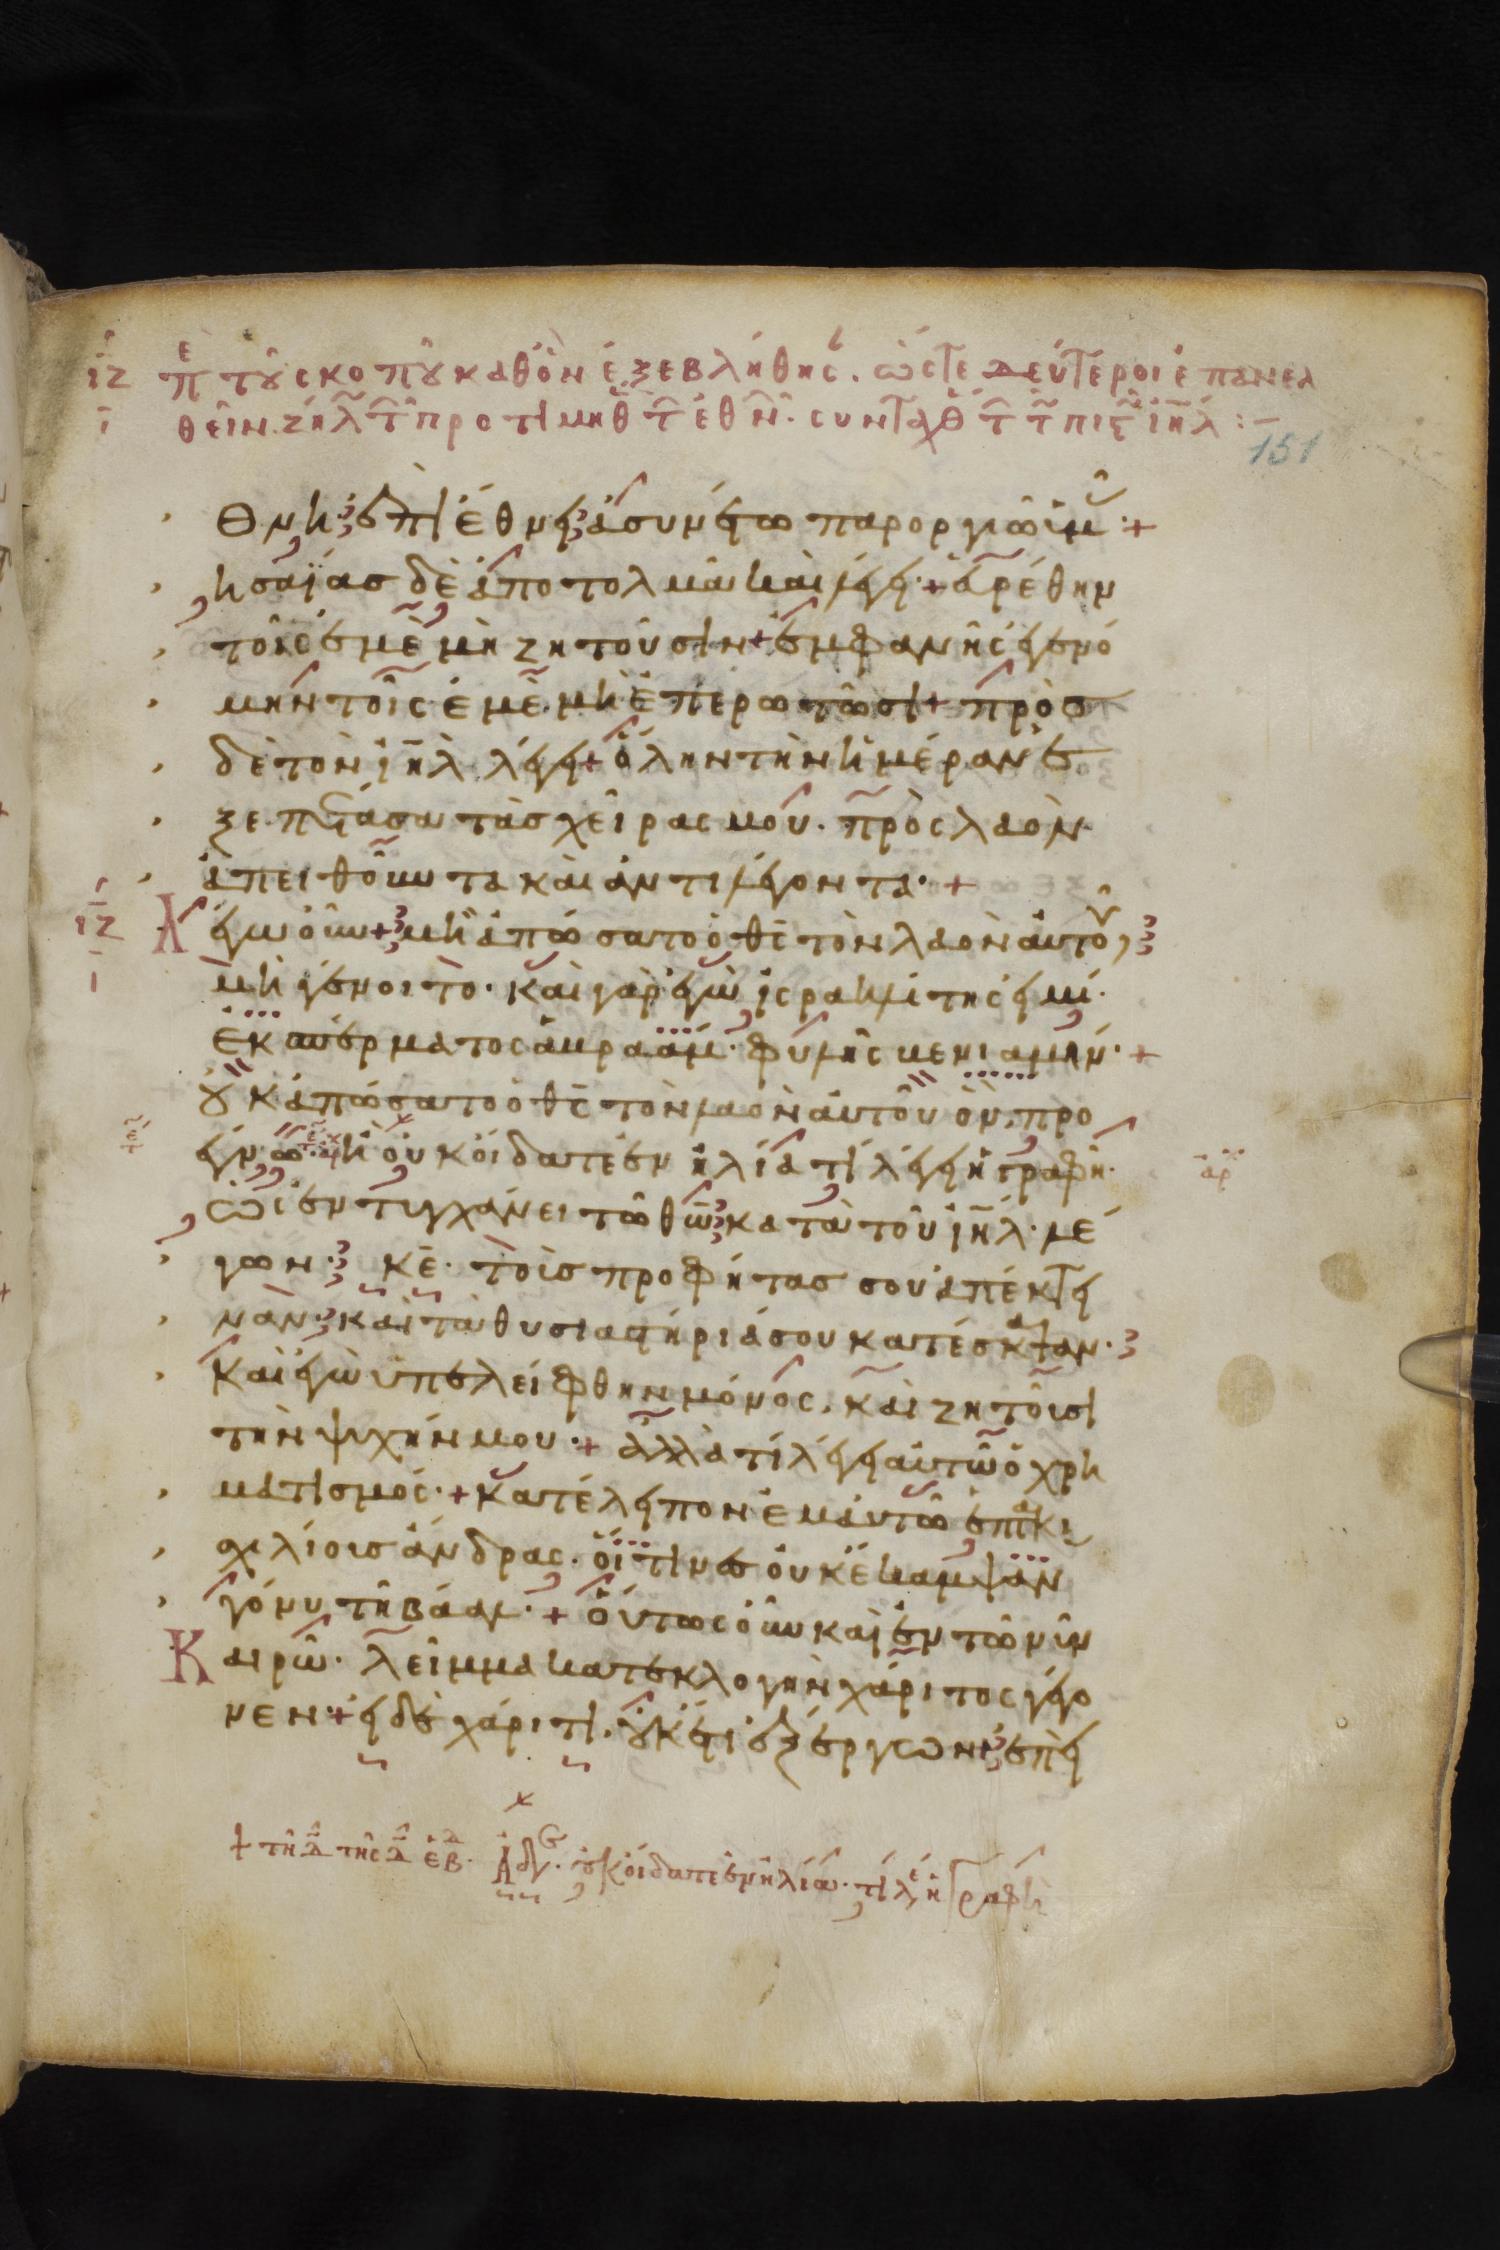 ιζ πε τοῦ σκοποῦ καθ ὃν ἐξεβλήθησ. ὥστε δεύτεροι ἐπανελ
ι θεῖν ζηλ τ προτιμηθ τ ἐθν. συνταχθ τ τ πιστ ἰηλ :-
151
θνει· ἐπὶ ἔθνει ἀσυνέτω παροργιῶ ὑμ +
ἠσαΐας δὲ ἀποτολμᾶ καὶ λέγει· + εὑρέθην
τοῖς ἐμὲ μὴ ζητοῦσιν + ἐμφανὴς ἐγενό
μην τοῖς ἐμὲ μὴ ἐπερωτῶσι + πρὸς
δὲ τὸν ἰηλ λέγει + ὅλην τὴν ἡμέραν ἐ
ξεπέτασα τὰς χεῖρας μου. πρὸς λαὸν
ἀπειθοῦντα καὶ ἀντιλέγοντα· +
ιζ Λέγω οὖν + μὴ ἀπώσατο ὁ θς τὸν λαὸν αὐτοῦ,
ι μὴ γένοιτο· καὶ γὰρ ἐγὼ ἰσραηλίτης εἰμί·
ἐκ σπέρματος ἀβραάμ· φυλῆς βενιαμήν· +
οὐκ ἀπώσατο ὁ θς τὸν λαὸν αὐτοῦ ὃν προ
έγνω· ἢ οὐκ οἴδατε ἐν ἠλία τί λέγει ἡ γραφή· ἀρ
ὡς ἐντυγχάνει τῶ θω κατὰ τοῦ ἰηλ· λέ
γων· κε· τοὺς προφήτας σου ἀπέκτει
ναν· καὶ τὰ θυσιαστήριά σου κατέσκαψαν·
καὶ ἐγὼ ὑπελείφθην μόνος, καὶ ζητοῦσι
τὴν ψυχήν μου· + ἀλλὰ τί λέγει αὐτῶ ὁ χρη
ματισμός· + κατέλειπον ἐμαυτῶ ἑπτακι
χιλίους ἄνδρας. οἵτινες οὐκ ἔκαμψαν
γόνυ τῆ βάαλ· + οὕτως οὖν καὶ ἐν τῶ νῦν
Καιρῶ· λεῖμμα κατ ἐκλογὴν χάριτος γέγο
νεν· + εἰ δὲ χάριτι. οὐκέτι ἐξ ἔργων· ἐπεὶ
+ τῆ δ τῆς δ ἑβ. Ἀδ· οὐκ οἴδατε ἐν ἠλία· τί λέ ἡ γραφὴ